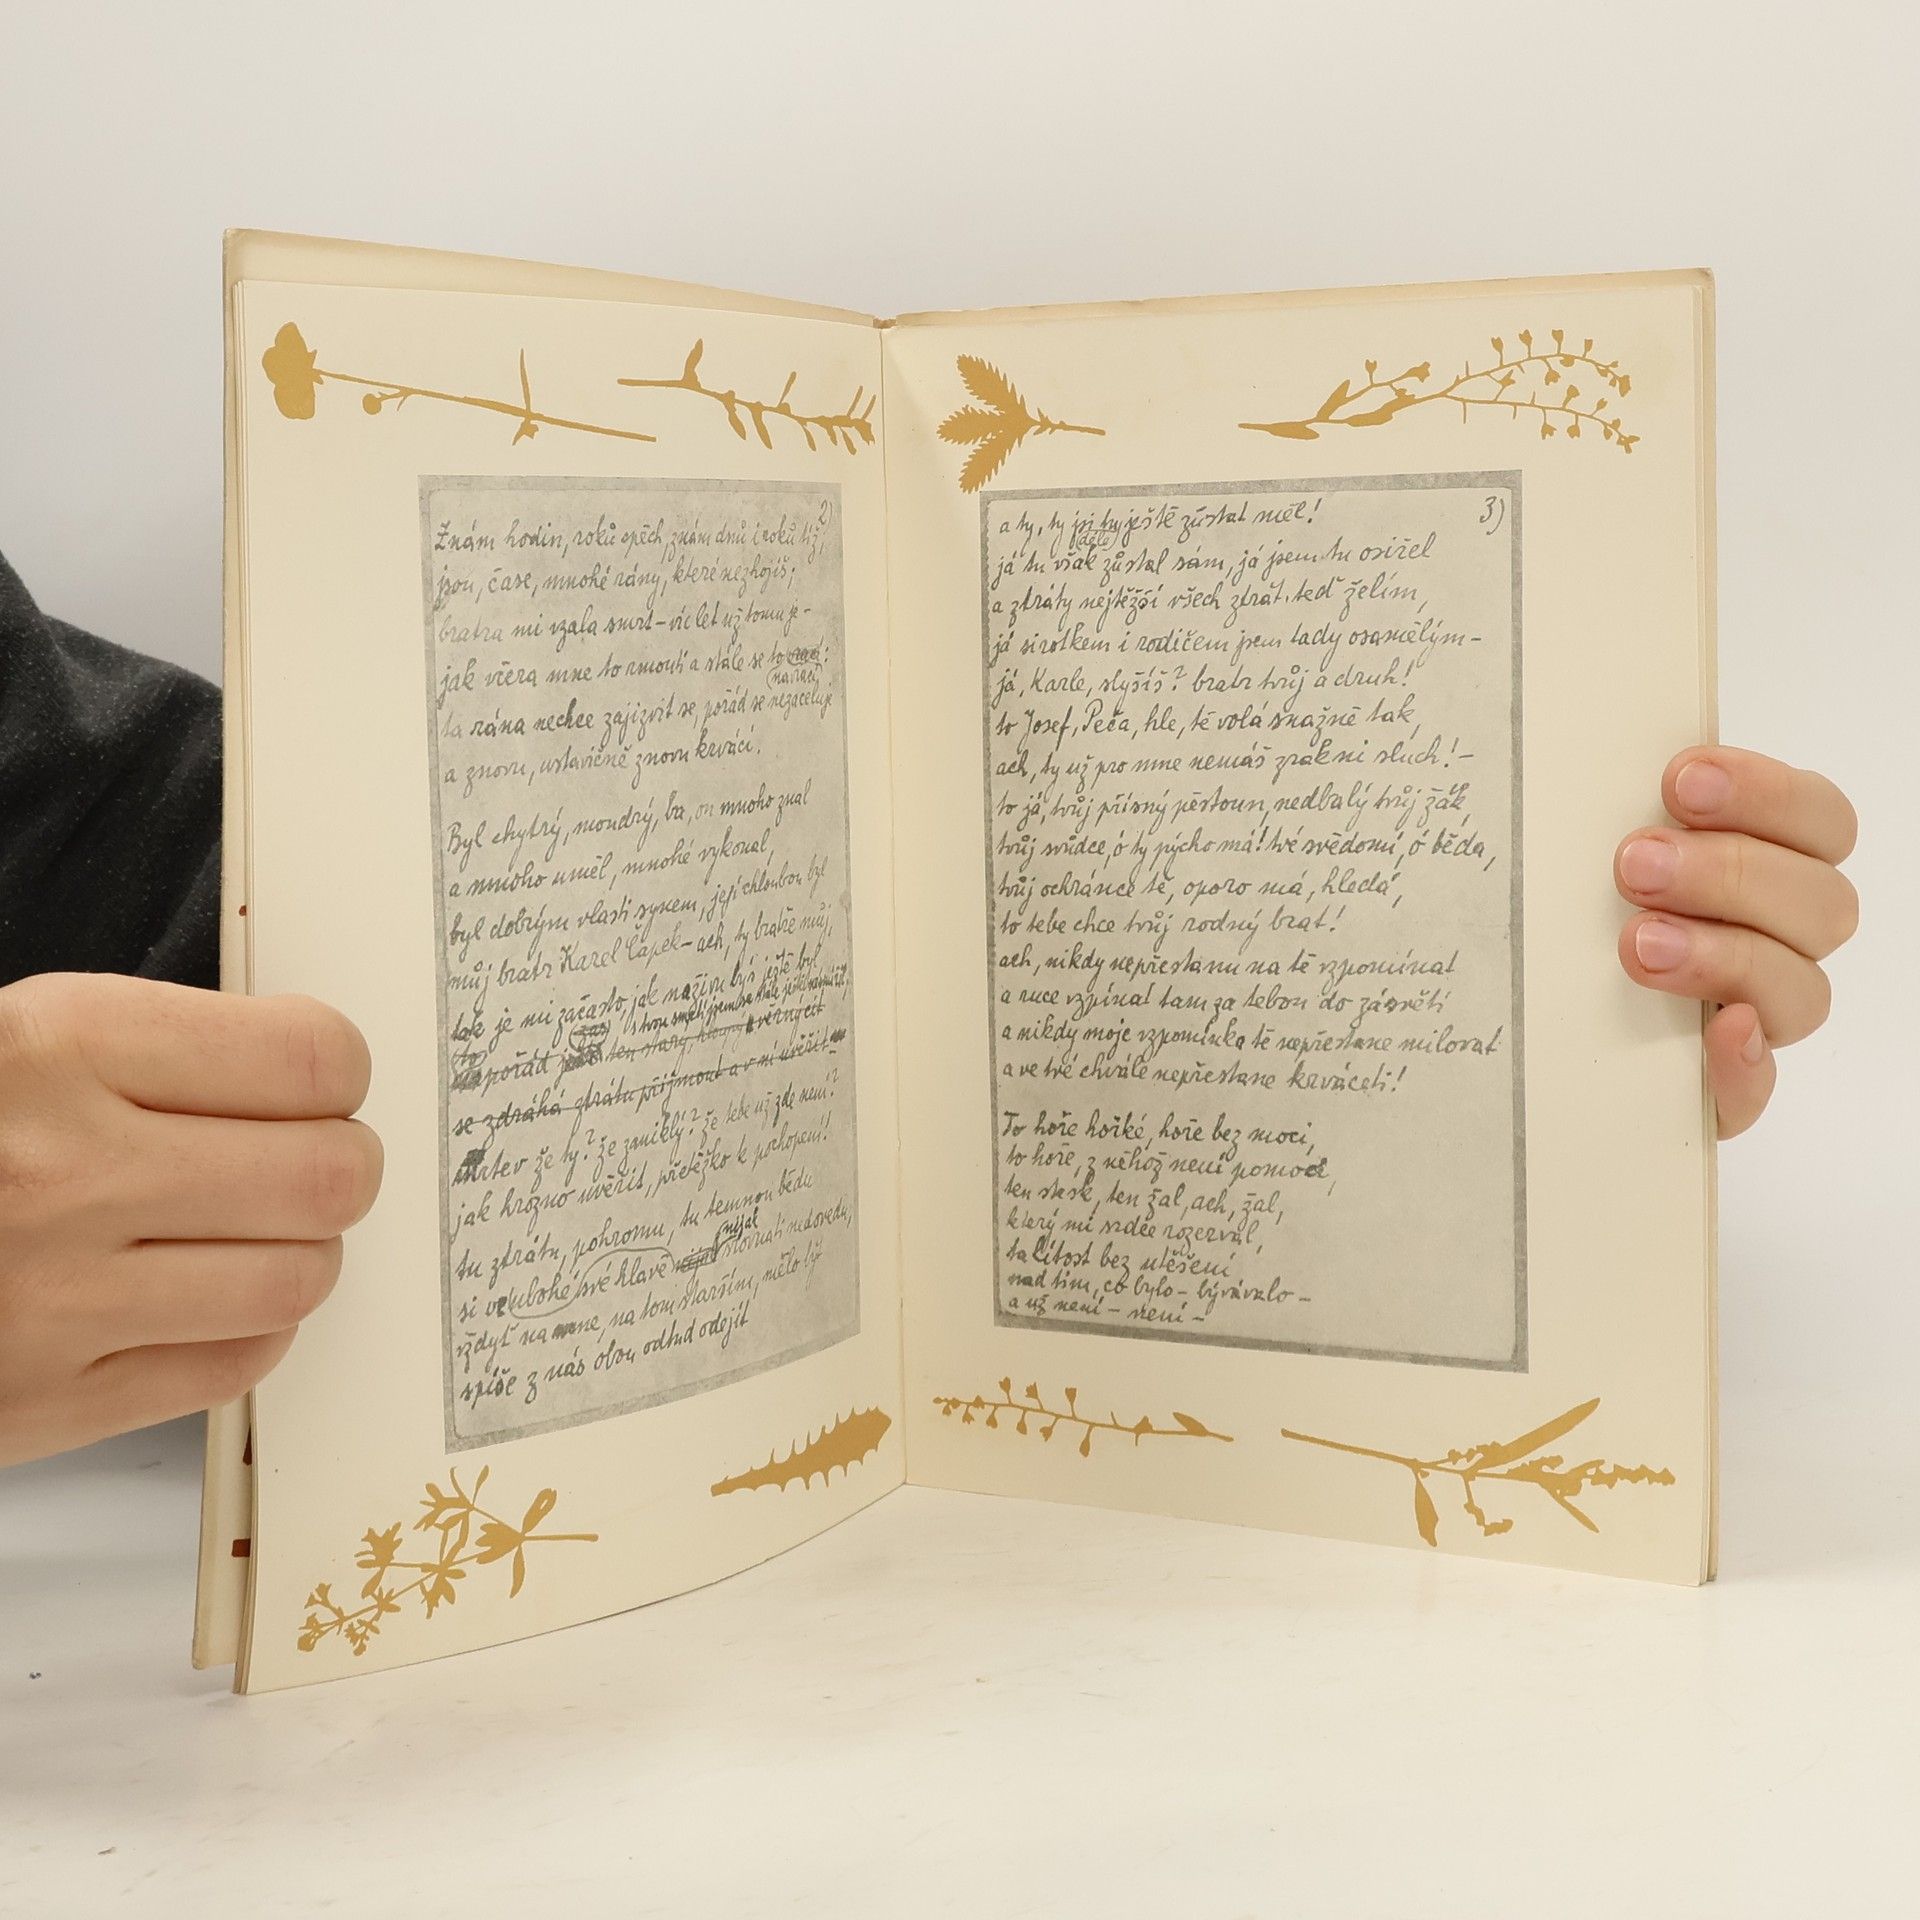 2)
Znám hodin, roků spěch, znám dnů i roků tíž,
jsou, čase, mnohé rány, které nezhojíš;
bratra mi vzala smrt – víc let už tomu je –
jak včera mne to rmoutí a stále se to vrací:
navrací
ta rána nechce zajizvit se, pořád se nezaceluje
a znovu, ustavičně znovu krvácí.
Byl chytrý, moudrý, ba, on mnoho znal
a mnoho uměl, mnohé vykonal,
byl dobrým vlasti synem, její chloubou byl
můj bratr Karel Čapek – ach, ty bratře můj,
tak je mi začasto, jak naživu bys ještě byl
to
pořád ten starý,
se zdráhá ztrátu přijmout a v ni uvěřit –
Mrtev že ty? že zaniklý? že tebe už zde není?
jak hrozno uvěřit, přetěžko k pochopení!
tu ztrátu, pohromu, tu temnou bědu
nijak
si v ubohé své hlavě srovnati nedovedu,
vždyť na mne, na tom starším, mělo být
spíše z nás obou odtud odejít
3)
a ty, ty jsi tu ještě zůstat měl!
déle
já tu však zůstal sám, já jsem tu osiřel
a ztráty nejtěžší všech ztrát teď želím,
já sirotkem i rodičem jsem tady osamělým –
já, Karle, slyšíš? bratr tvůj a druh!
to Josef, Peča, hle, tě volá snažně tak,
ach, ty už pro mne nemáš zrak ni sluch! –
to já, tvůj přísný pěstoun, nedbalý tvůj žák,
tvůj svůdce, ó ty pýcho má! tvé svědomí, ó běda,
tvůj ochránce tě, oporo má, hledá,
to tebe chce tvůj rodný brat!
ach, nikdy nepřestanu na tě vzpomínat
a ruce vzpínat tam za tebou do zásvětí
a nikdy moje vzpomínka tě nepřestane milovat
a ve tvé chvále nepřestane krváceti!
To hoře hořké, hoře bez moci,
to hoře, z něhož není pomoci,
ten stesk, ten žal, ach, žal,
který mi srdce rozerval,
ta lítost bez utěšení
nad tím, co bylo – bývávalo –
a už není – není –